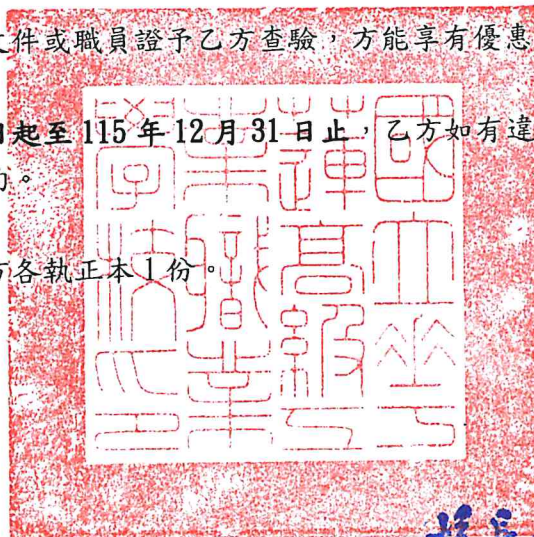 文件或職員證予乙方查驗,方能享有優惠
日起至 115 年 12 月 31 日止,乙方如有違
方各執正本 1 份。
國立花蓮高級工業職業學校之印